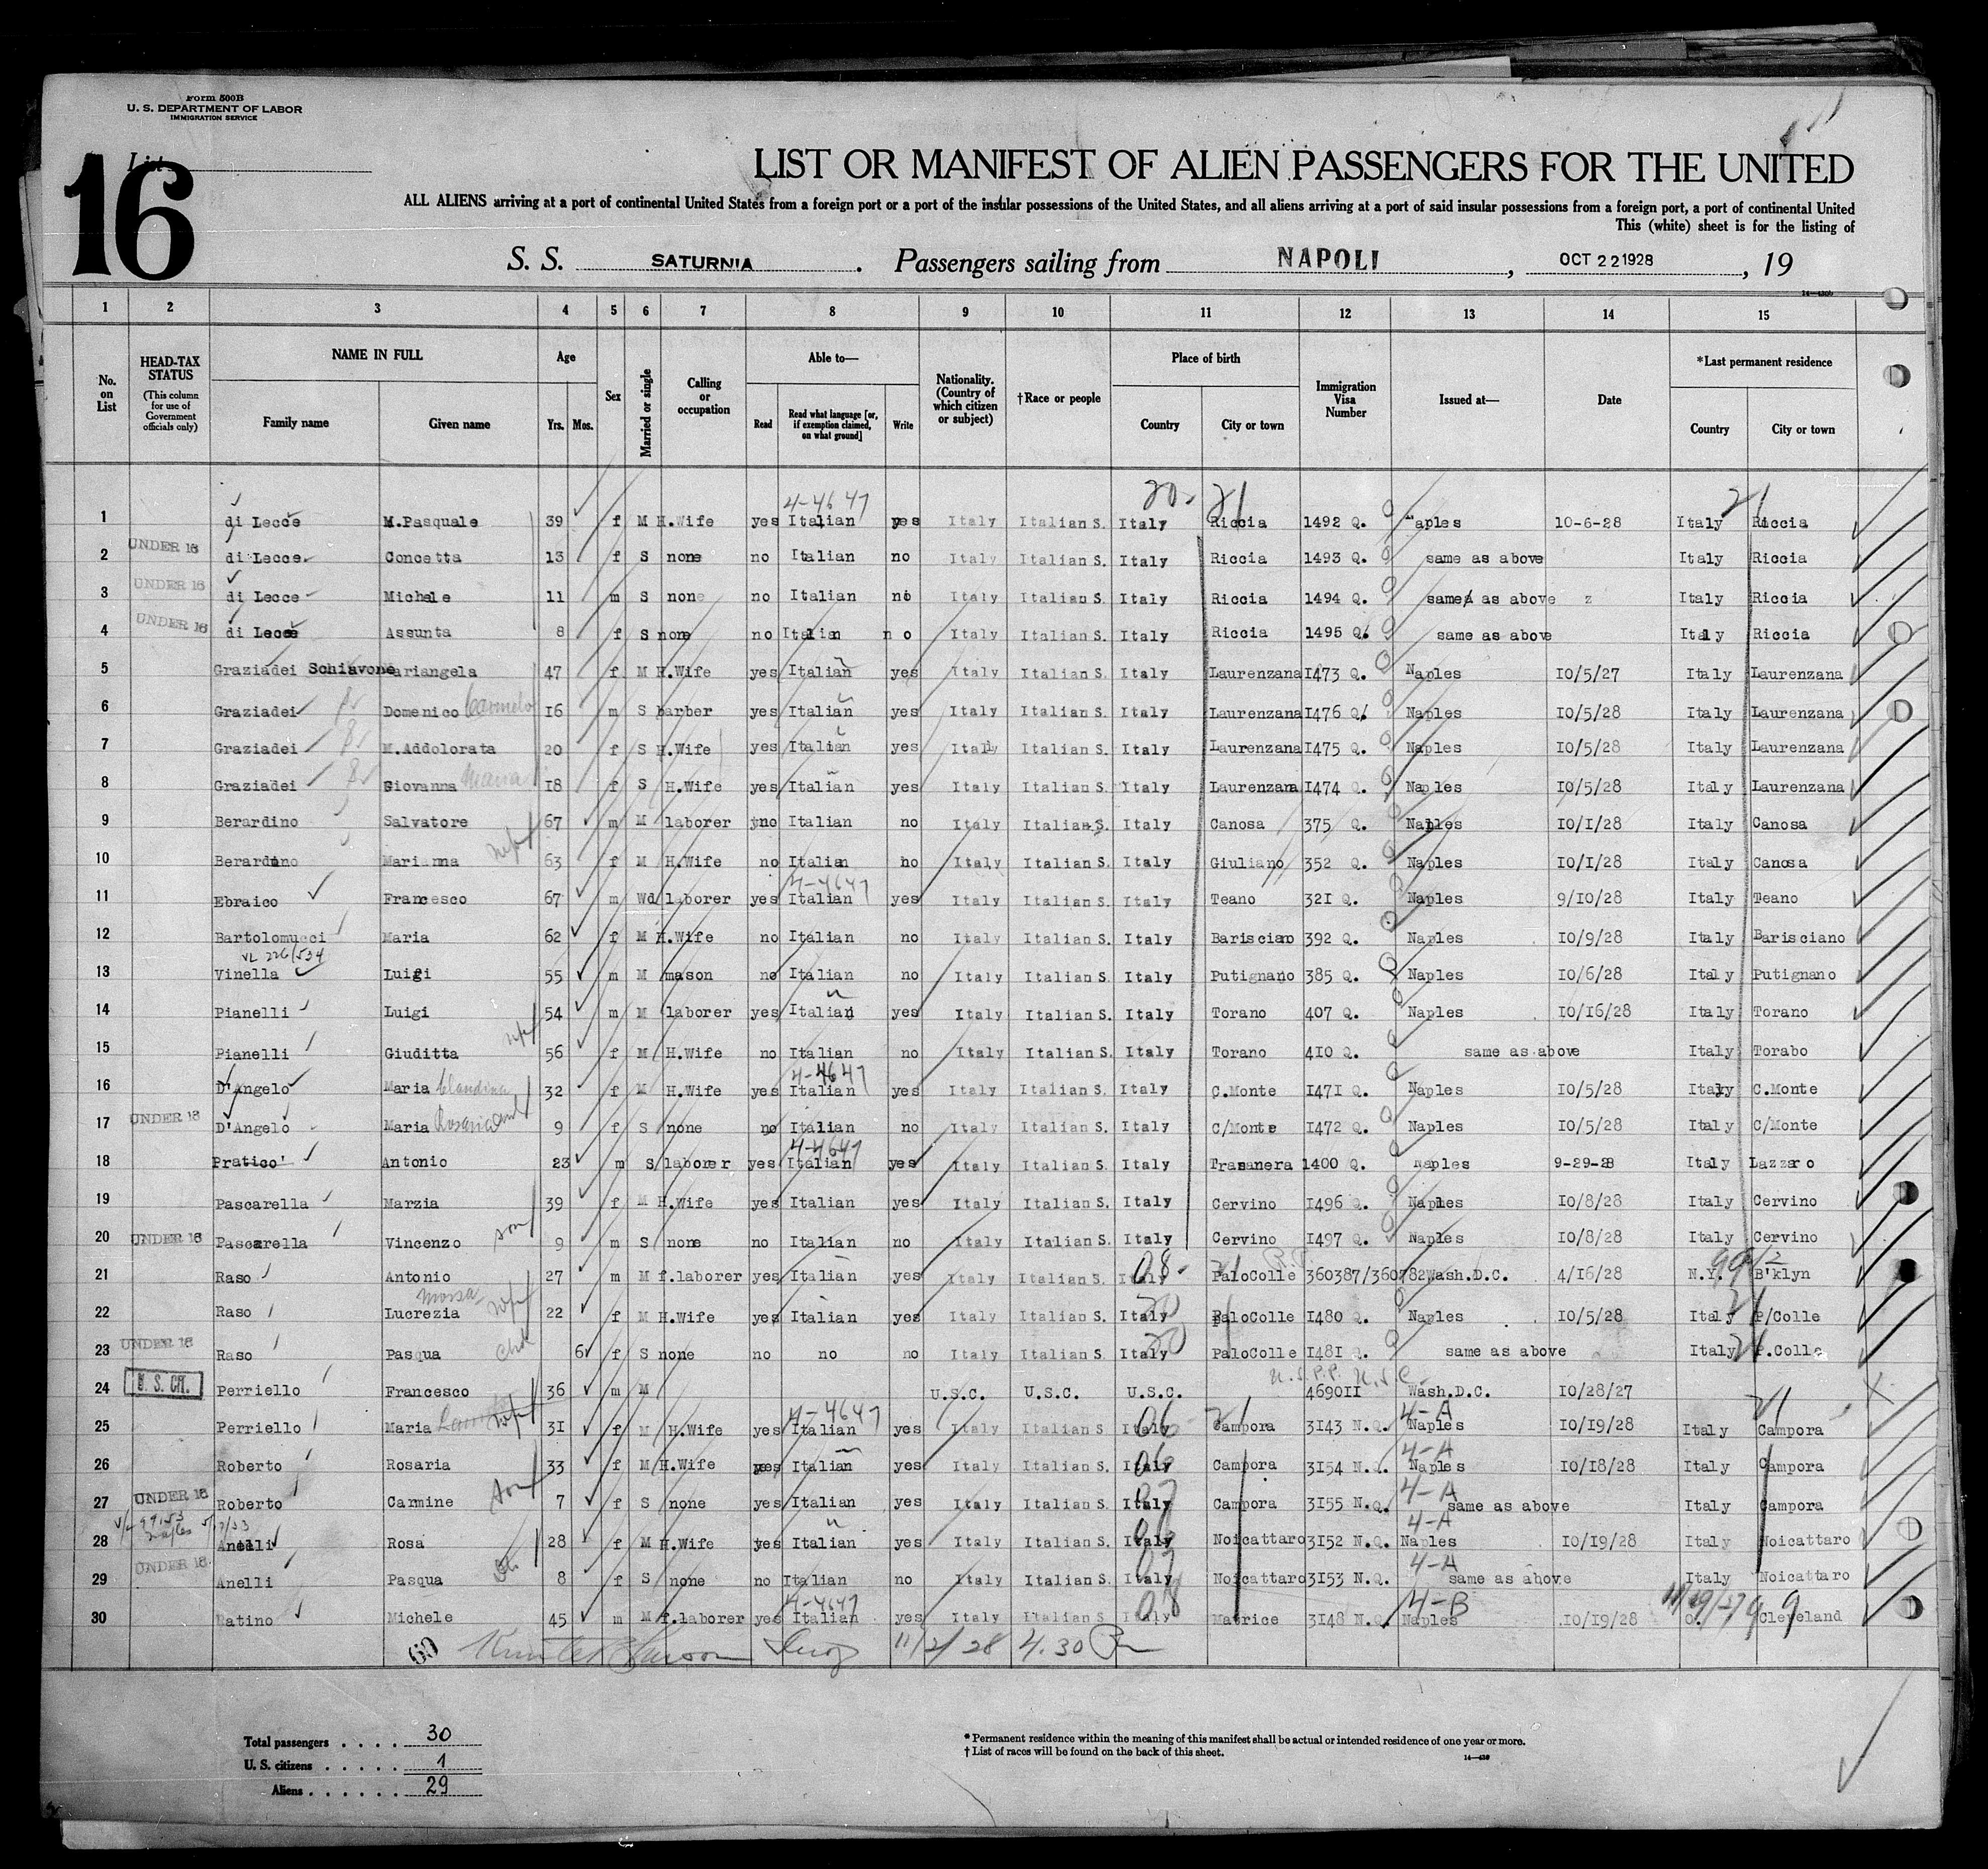 Form 500B
U. S. DEPARTMENT OF LABOR
IMMIGRATION SERVICE
List
16
LIST OR MANIFEST OF ALIEN PASSENGERS FOR THE UNITED
ALL ALIENS arriving at a port of continental United States from a foreign port or a port of the insular possessions of the United States, and all aliens arriving at a port of said insular possessions from a foreign port, a port of continental United
This (white) sheet is for the listing of
S. S. SATURNIA . Passengers sailing from NAPOLI , OCT 22 1928 , 19
1 2 3 4 5 6 7 8 9 10 11 12 13 14 15
No. on List
HEAD-TAX STATUS
(This column for use of Government officials only)
NAME IN FULL
Family name Given name
Age
Yrs. Mos.
Sex
Married or single
Calling or occupation
Able to—
Read
Read what language [or, if exemption claimed, on what ground]
Write
Nationality. (Country of which citizen or subject)
†Race or people
Place of birth
Country City or town
Immigration Visa Number
Issued at—
Date
*Last permanent residence
Country City or town
4-4647 20- 21 21
1 di Lecce M.Pasquale 39 f M H.Wife yes Italian yes Italy Italian S. Italy Riccia 1492 Q. Naples 10-6-28 Italy Riccia
2 UNDER 16 di Lecce Concetta 13 f S none no Italian no Italy Italian S. Italy Riccia 1493 Q. same as above Italy Riccia
3 UNDER 16 di Lecce Michele 11 m S none no Italian no Italy Italian S. Italy Riccia 1494 Q. same as above z Italy Riccia
4 UNDER 16 di Lecce Assunta 8 f S none no Italian no Italy Italian S. Italy Riccia 1495 Q. same as above Italy Riccia
5 Graziadei Schiavone Mariangela 47 f M H.Wife yes Italian yes Italy Italian S. Italy Laurenzana 1473 Q. Naples 10/5/27 Italy Laurenzana
6 Graziadei Domenico Carmelo 16 m S barber yes Italian yes Italy Italian S. Italy Laurenzana 1476 Q. Naples 10/5/28 Italy Laurenzana
7 Graziadei M.Addolorata 20 f S H.Wife yes Italian yes Italy Italian S. Italy Laurenzana 1475 Q. Naples 10/5/28 Italy Laurenzana
8 Graziadei Giovanna Maria 18 f S H.Wife yes Italian yes Italy Italian S. Italy Laurenzana 1474 Q. Naples 10/5/28 Italy Laurenzana
9 Berardino Salvatore 67 m M laborer no Italian no Italy Italian S. Italy Canosa 375 Q. Naples 10/1/28 Italy Canosa
10 Berardino Marianna 63 f M H.Wife no Italian no Italy Italian S. Italy Giuliano 352 Q. Naples 10/1/28 Italy Canosa
4-4647
11 Ebraico Francesco 67 m Wd laborer yes Italian yes Italy Italian S. Italy Teano 321 Q. Naples 9/10/28 Italy Teano
12 Bartolomucci Maria 62 f M H.Wife no Italian no Italy Italian S. Italy Barisciano 392 Q. Naples 10/9/28 Italy Barisciano
VL 226/534
13 Vinella Luigi 55 m M mason no Italian no Italy Italian S. Italy Putignano 385 Q. Naples 10/6/28 Italy Putignano
14 Pianelli Luigi 54 m M laborer yes Italian yes Italy Italian S. Italy Torano 407 Q. Naples 10/16/28 Italy Torano
15 Pianelli Giuditta 56 f M H.Wife no Italian no Italy Italian S. Italy Torano 410 Q. same as above Italy Torabo
4-4647
16 D'Angelo Maria Clandina 32 f M H.Wife yes Italian yes Italy Italian S. Italy C.Monte 1471 Q. Naples 10/5/28 Italy C.Monte
17 UNDER 16 D'Angelo Maria 9 f S none no Italian no Italy Italian S. Italy C/Monte 1472 Q. Naples 10/5/28 Italy C/Monte
4-4647
18 Pratico' Antonio 23 m S laborer yes Italian yes Italy Italian S. Italy Trasanera 1400 Q. Naples 9-29-28 Italy Lazzaro
19 Pascarella Marzia 39 f M H.Wife yes Italian yes Italy Italian S. Italy Cervino 1496 Q. Naples 10/8/28 Italy Cervino
20 UNDER 16 Pascarella Vincenzo son 9 m S none no Italian no Italy Italian S. Italy Cervino 1497 Q. Naples 10/8/28 Italy Cervino
21 Raso Antonio 27 m M f.laborer yes Italian yes Italy Italian S. Italy 08- PaloColle 360387/360782 Wash.D.C. 4/16/28 N.Y. B'klyn
22 Raso Lucrezia 22 f M H.Wife yes Italian yes Italy Italian S. Italy 20 PaloColle 1480 Q. Naples 10/5/28 Italy P/Colle
23 UNDER 16 Raso Pasqua 6 f S none no no no Italy Italian S. Italy 20 PaloColle 1481 Q. same as above Italy P.Colle
U.S.P.P. U.S.C.
24 U. S. CIT. Perriello Francesco 36 m M U.S.C. U.S.C. U.S.C. 469011 Wash.D.C. 10/28/27
4-4647 4-A 21
25 Perriello Maria 31 f M H.Wife yes Italian yes Italy Italian S. Italy 06 Campora 3143 N.Q. Naples 10/19/28 Italy Campora
4-A
26 Roberto Rosaria 33 f M H.Wife yes Italian yes Italy Italian S. Italy Campora 3154 N.Q. Naples 10/18/28 Italy Campora
4-A
27 UNDER 16 Roberto Carmine son 7 f S none yes Italian yes Italy Italian S. Italy Campora 3155 N.Q. same as above Italy Campora
4-A
28 Anelli Rosa 28 f M H.Wife yes Italian yes Italy Italian S. Italy Noicattaro 3152 N.Q. Naples 10/19/28 Italy Noicattaro
4-A
29 UNDER 16 Anelli Pasqua 8 f S none no Italian no Italy Italian S. Italy Noicattaro 3153 N.Q. same as above Italy Noicattaro
4-4647 4-B
30 Ratino Michele 45 m M f.laborer yes Italian yes Italy Italian S. Italy 08 Matrice 3148 N.Q. Naples 10/19/28 O. Cleveland
60 11/2/28 4.30
Total passengers . . . . 30
U. S. citizens . . . . . 1
Aliens . . . . . . 29
* Permanent residence within the meaning of this manifest shall be actual or intended residence of one year or more.
† List of races will be found on the back of this sheet.